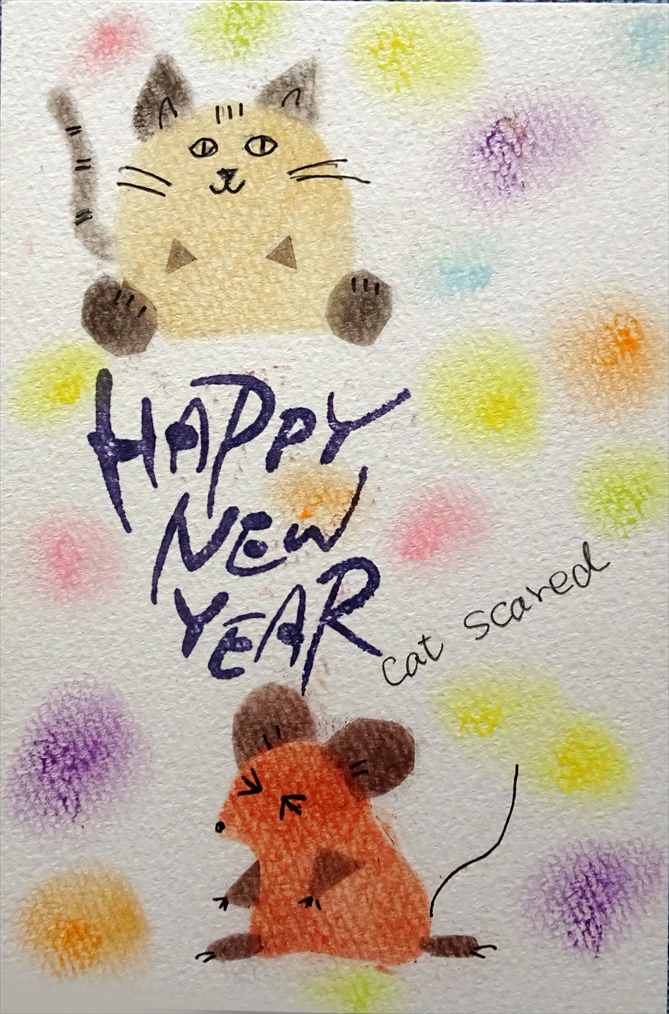 HAPPY
NEW
YEAR
cat scared